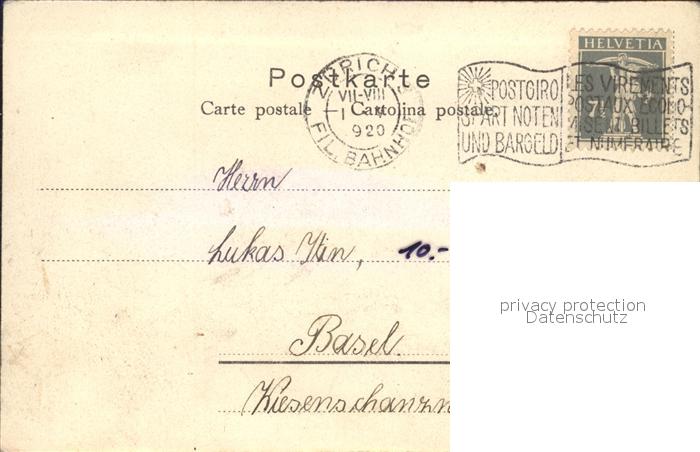 HELVETIA
7½
Postkarte
Carte postale — Cartolina postale.
ZÜRICH
VII-VIII
1920
FIL. BAHNHOF
POSTGIRO
SPART NOTEN
UND BARGELD
LES VIREMENTS
POSTAUX ÉCONO-
MISENT BILLETS
ET NUMÉRAIRE
Herrn
Lukas Itin, 10.-
privacy protection
Datenschutz
Basel.